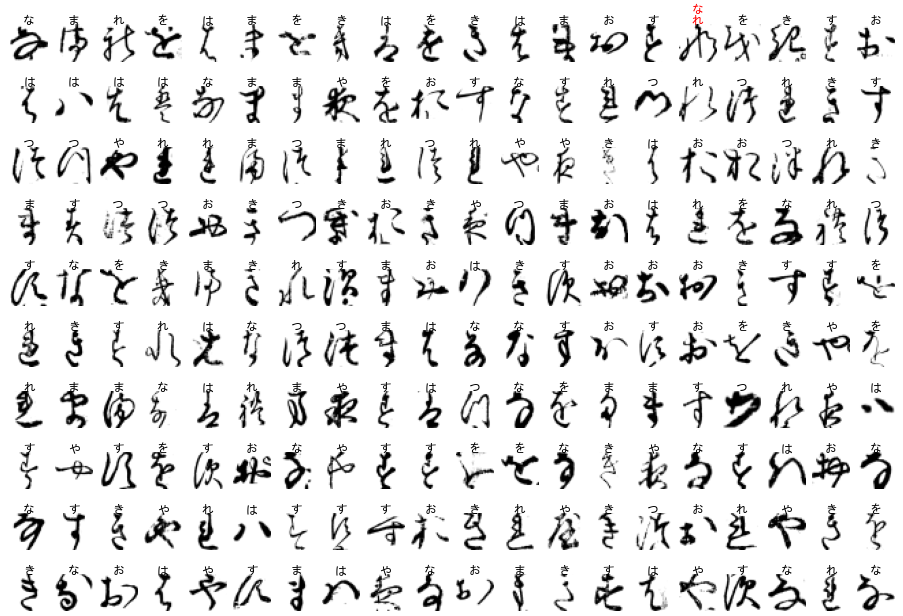 なまれをはまをきはをきはまおすなれをきすお
はははははなままやをおすなすれつれつれきす
つつやれれまつまれつれややきはおおつれき
ますつつおきつきおきやつまおはれをなれつ
すなをきまきれすまおはきすおおおきすすを
れきすれはなつつまはななすおすおをきやを
れままなはれまやすはつなをまますつれやは
すやすをすおなやすすををなきやなすはおな
なすきやれはすすすおきれやきすおれやきを
きなおはやすまはやなおまきすはやすなれな